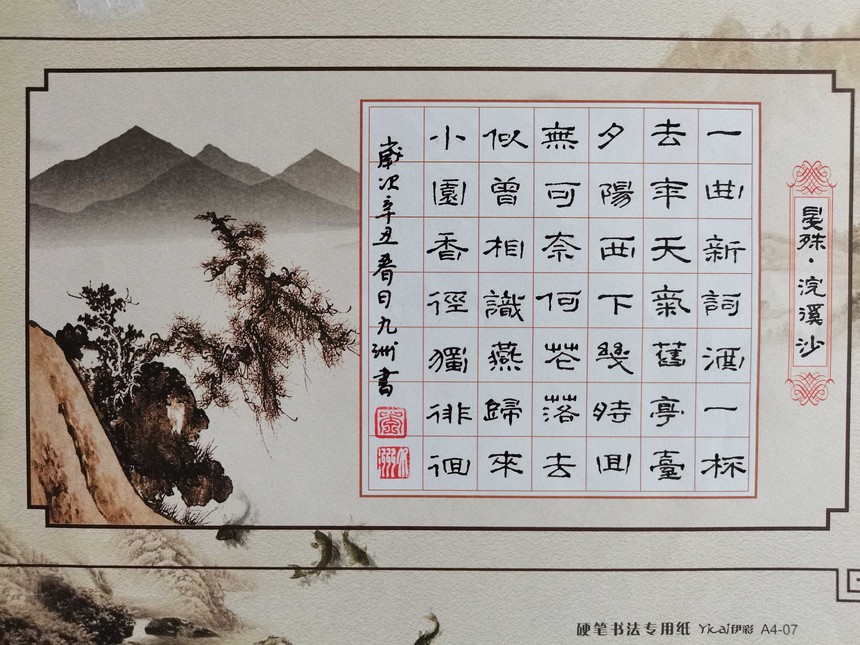 晏殊·浣溪沙
一曲新詞酒一杯
去年天氣舊亭臺
夕陽西下幾時回
無可奈何花落去
似曾相識燕歸來
小園香徑獨徘徊
歲次辛丑春日九洲書
硬笔书法专用纸 Yicai伊彩 A4-07